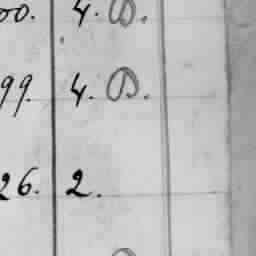 00. 4. D.
99. 4. D.
26. 2.